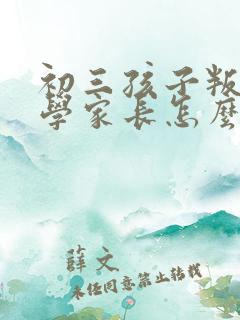 初三孩子叛
學家長怎麼
薛文
未经同意禁止转载